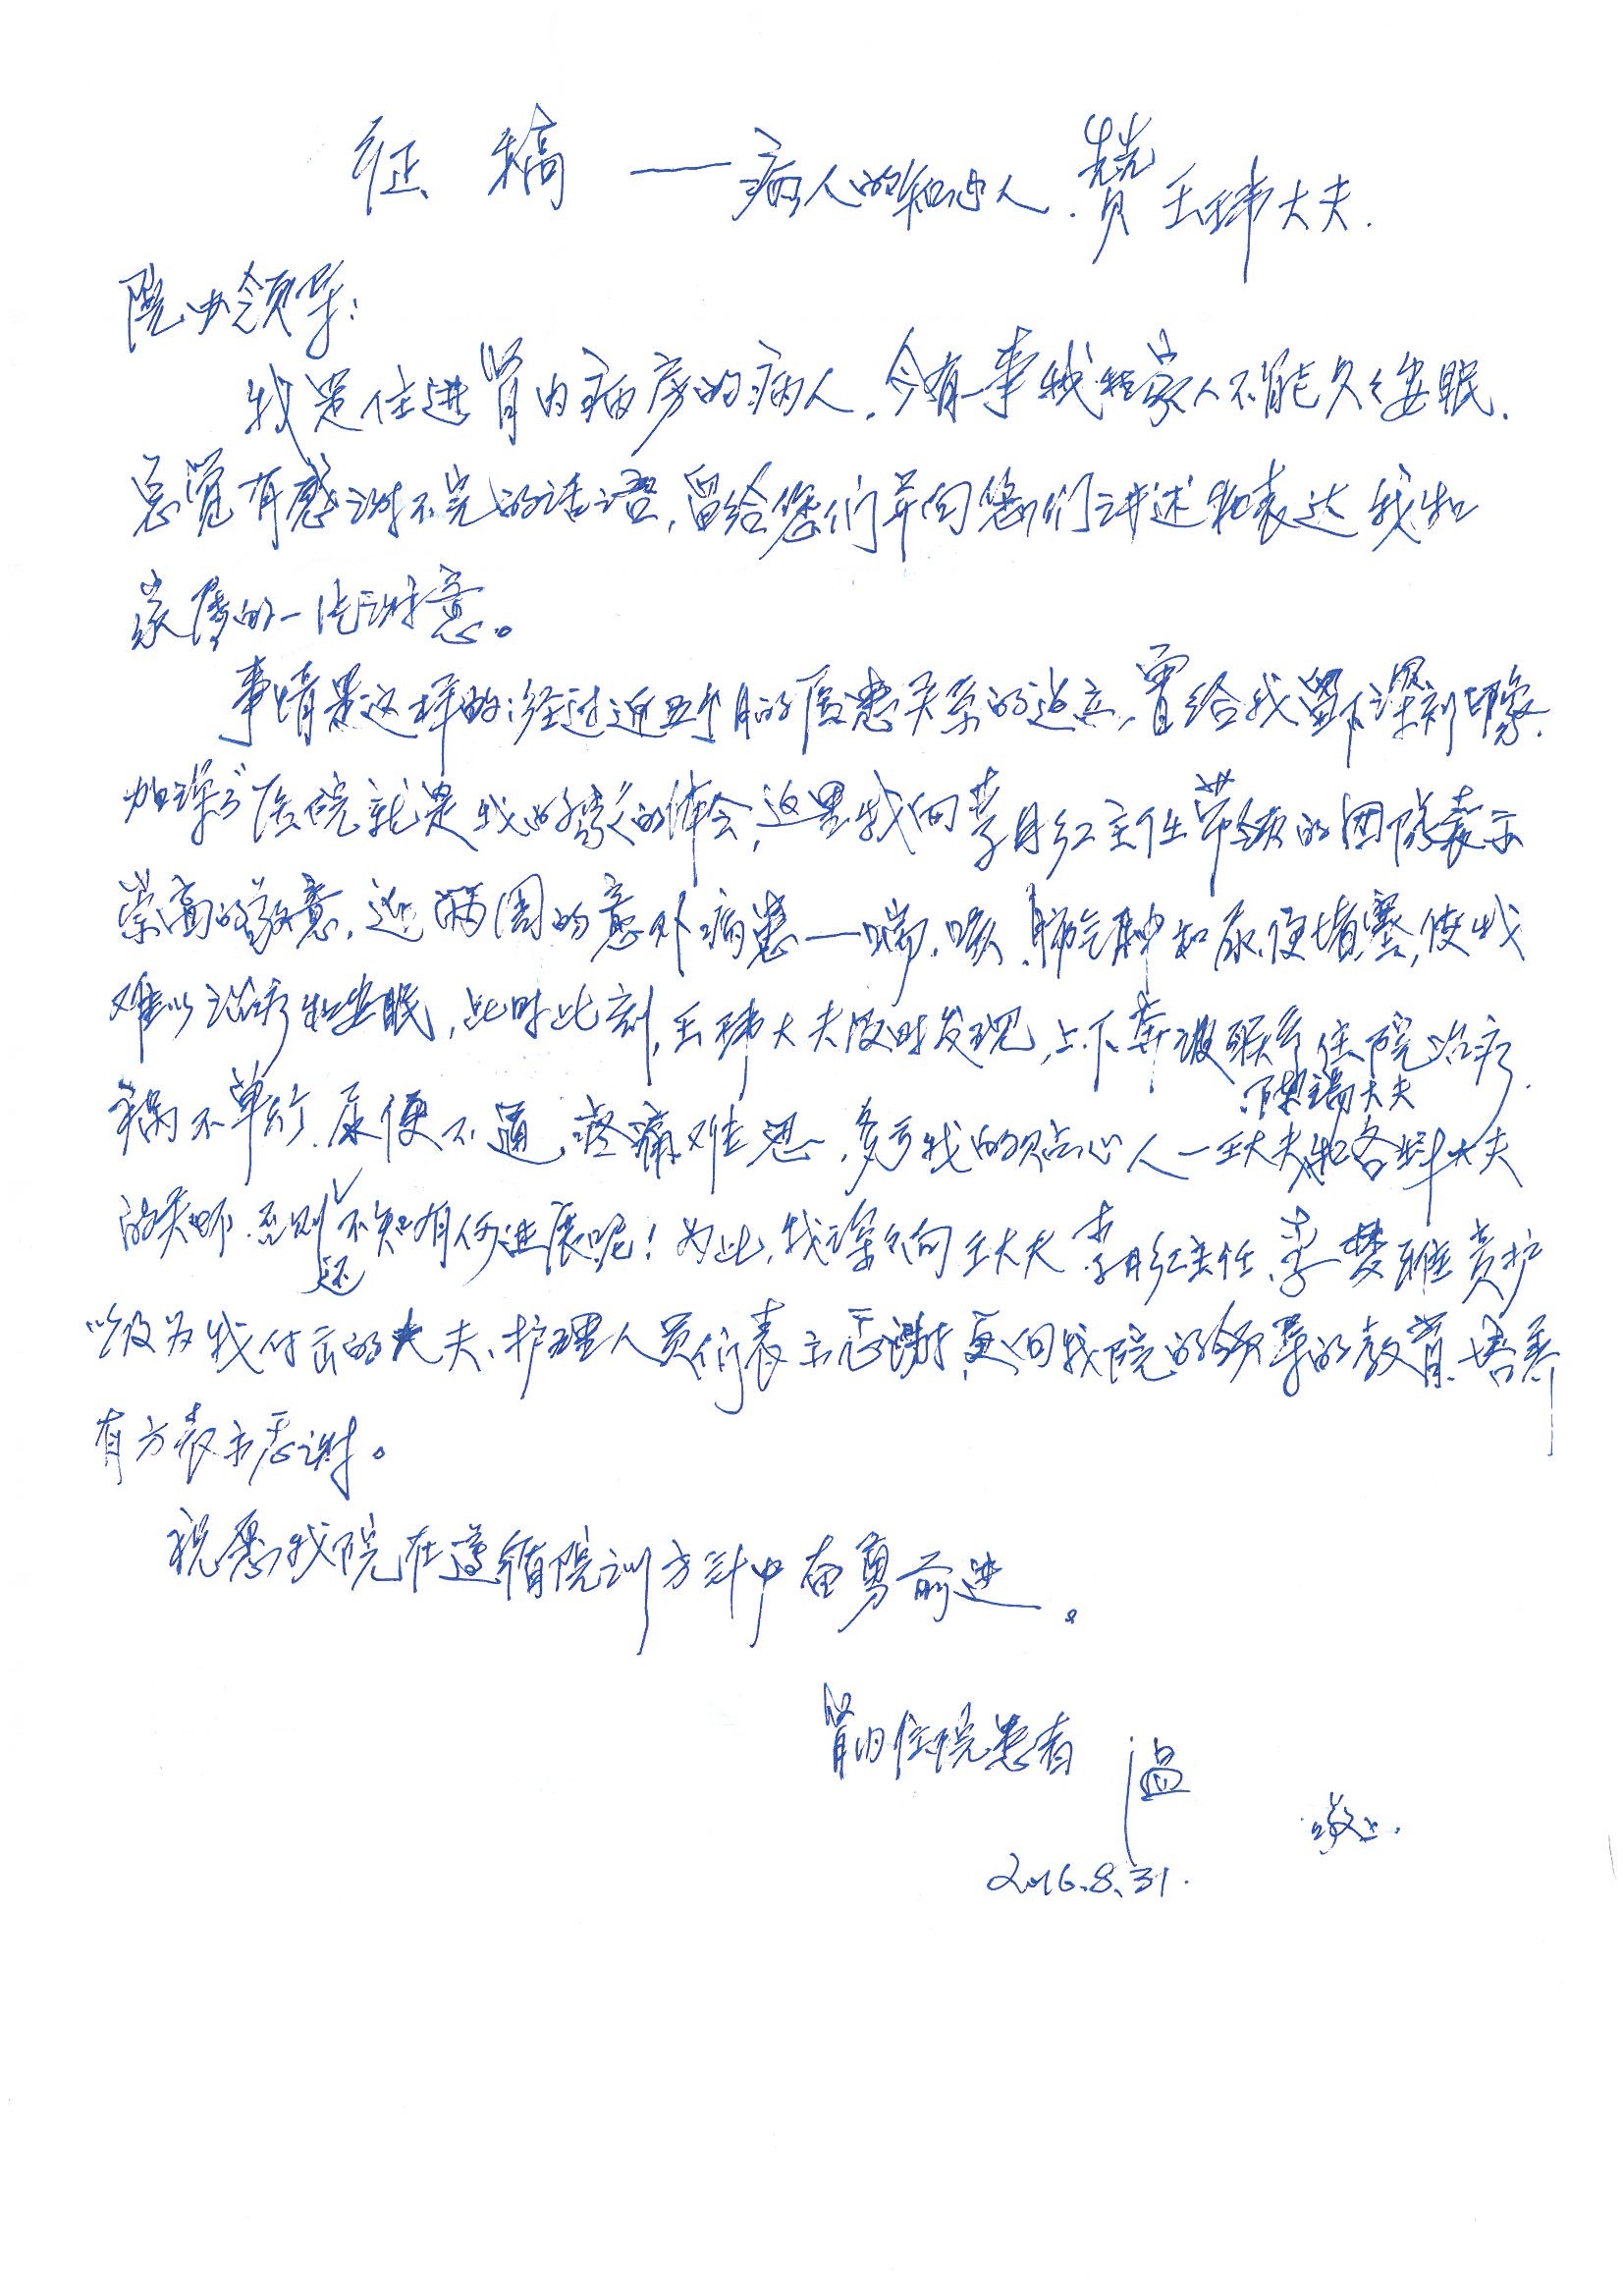 征稿——病人的知心人.赞王玮大夫.
院业领导:
我是住进肾内病房的病人.今有一事我和家人不能久久安眠.
总觉有感谢不完的话语,留给您们并向您们讲述和表达我和
家属的一片谢意。
事情是这样的:经过近五个月的医患关系的建立,曾给我留下深刻印象.
加深了"医院就是我的家"的体会,这里我向李月红主任带领的团队表示
崇高的敬意.近两周的意外病患——喘.咳.肺气肿和尿.便堵塞,使我
难以治疗和安眠,此时此刻,王玮大夫及时发现,上下奔波联系住院治疗.
祸不单行.尿便不通.疼痛难忍.多亏我的贴心人—王大夫、陈瑞大夫和各科大夫
的关怀.否则还不知有何进展呢!为此,我深深向王大夫.李月红主任、李梦雅责护
以及为我付出的大夫、护理人员们表示感谢,更向我院的领导的教育、培养
有方表示感谢。
祝愿我院在遵循院训方针中奋勇前进。
肾内住院患者 温
敬上.
2016.8.31.